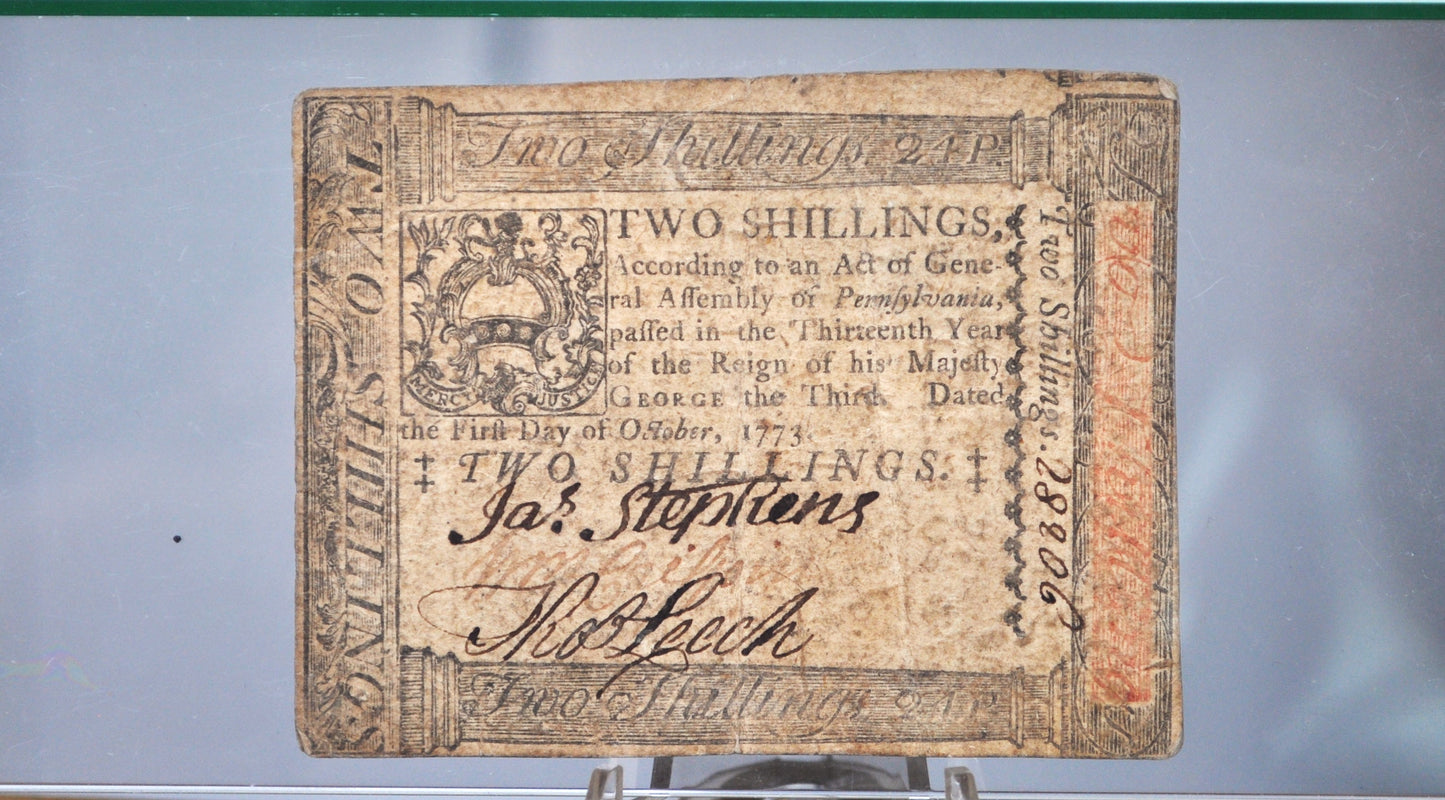 Two Shillings, 24 P.
TWO SHILLINGS.
TWO SHILLINGS,
According to an Act of Gene-
ral Aſſembly of Pennſylvania,
paſſed in the Thirteenth Year
of the Reign of his Majeſty
GEORGE the Third. Dated
the Firſt Day of October, 1773.
MERCY JUSTICE
‡ TWO SHILLINGS. ‡
Jaˢ. Stephens
Thoˢ Leech
Two Shillings, 24 P.
Two Shillings.